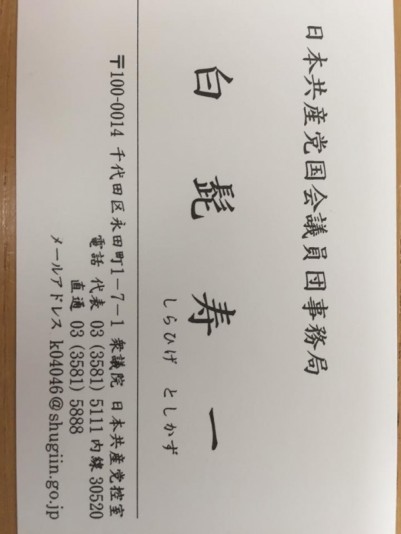 日本共産党国会議員団事務局
白髭寿一
しらひげ としかず
〒100-0014 千代田区永田町1-7-1 衆議院 日本共産党控室
電話 代表 03 (3581) 5111 内線 30520
直通 03 (3581) 5888
メールアドレス k04046@shugiin.go.jp